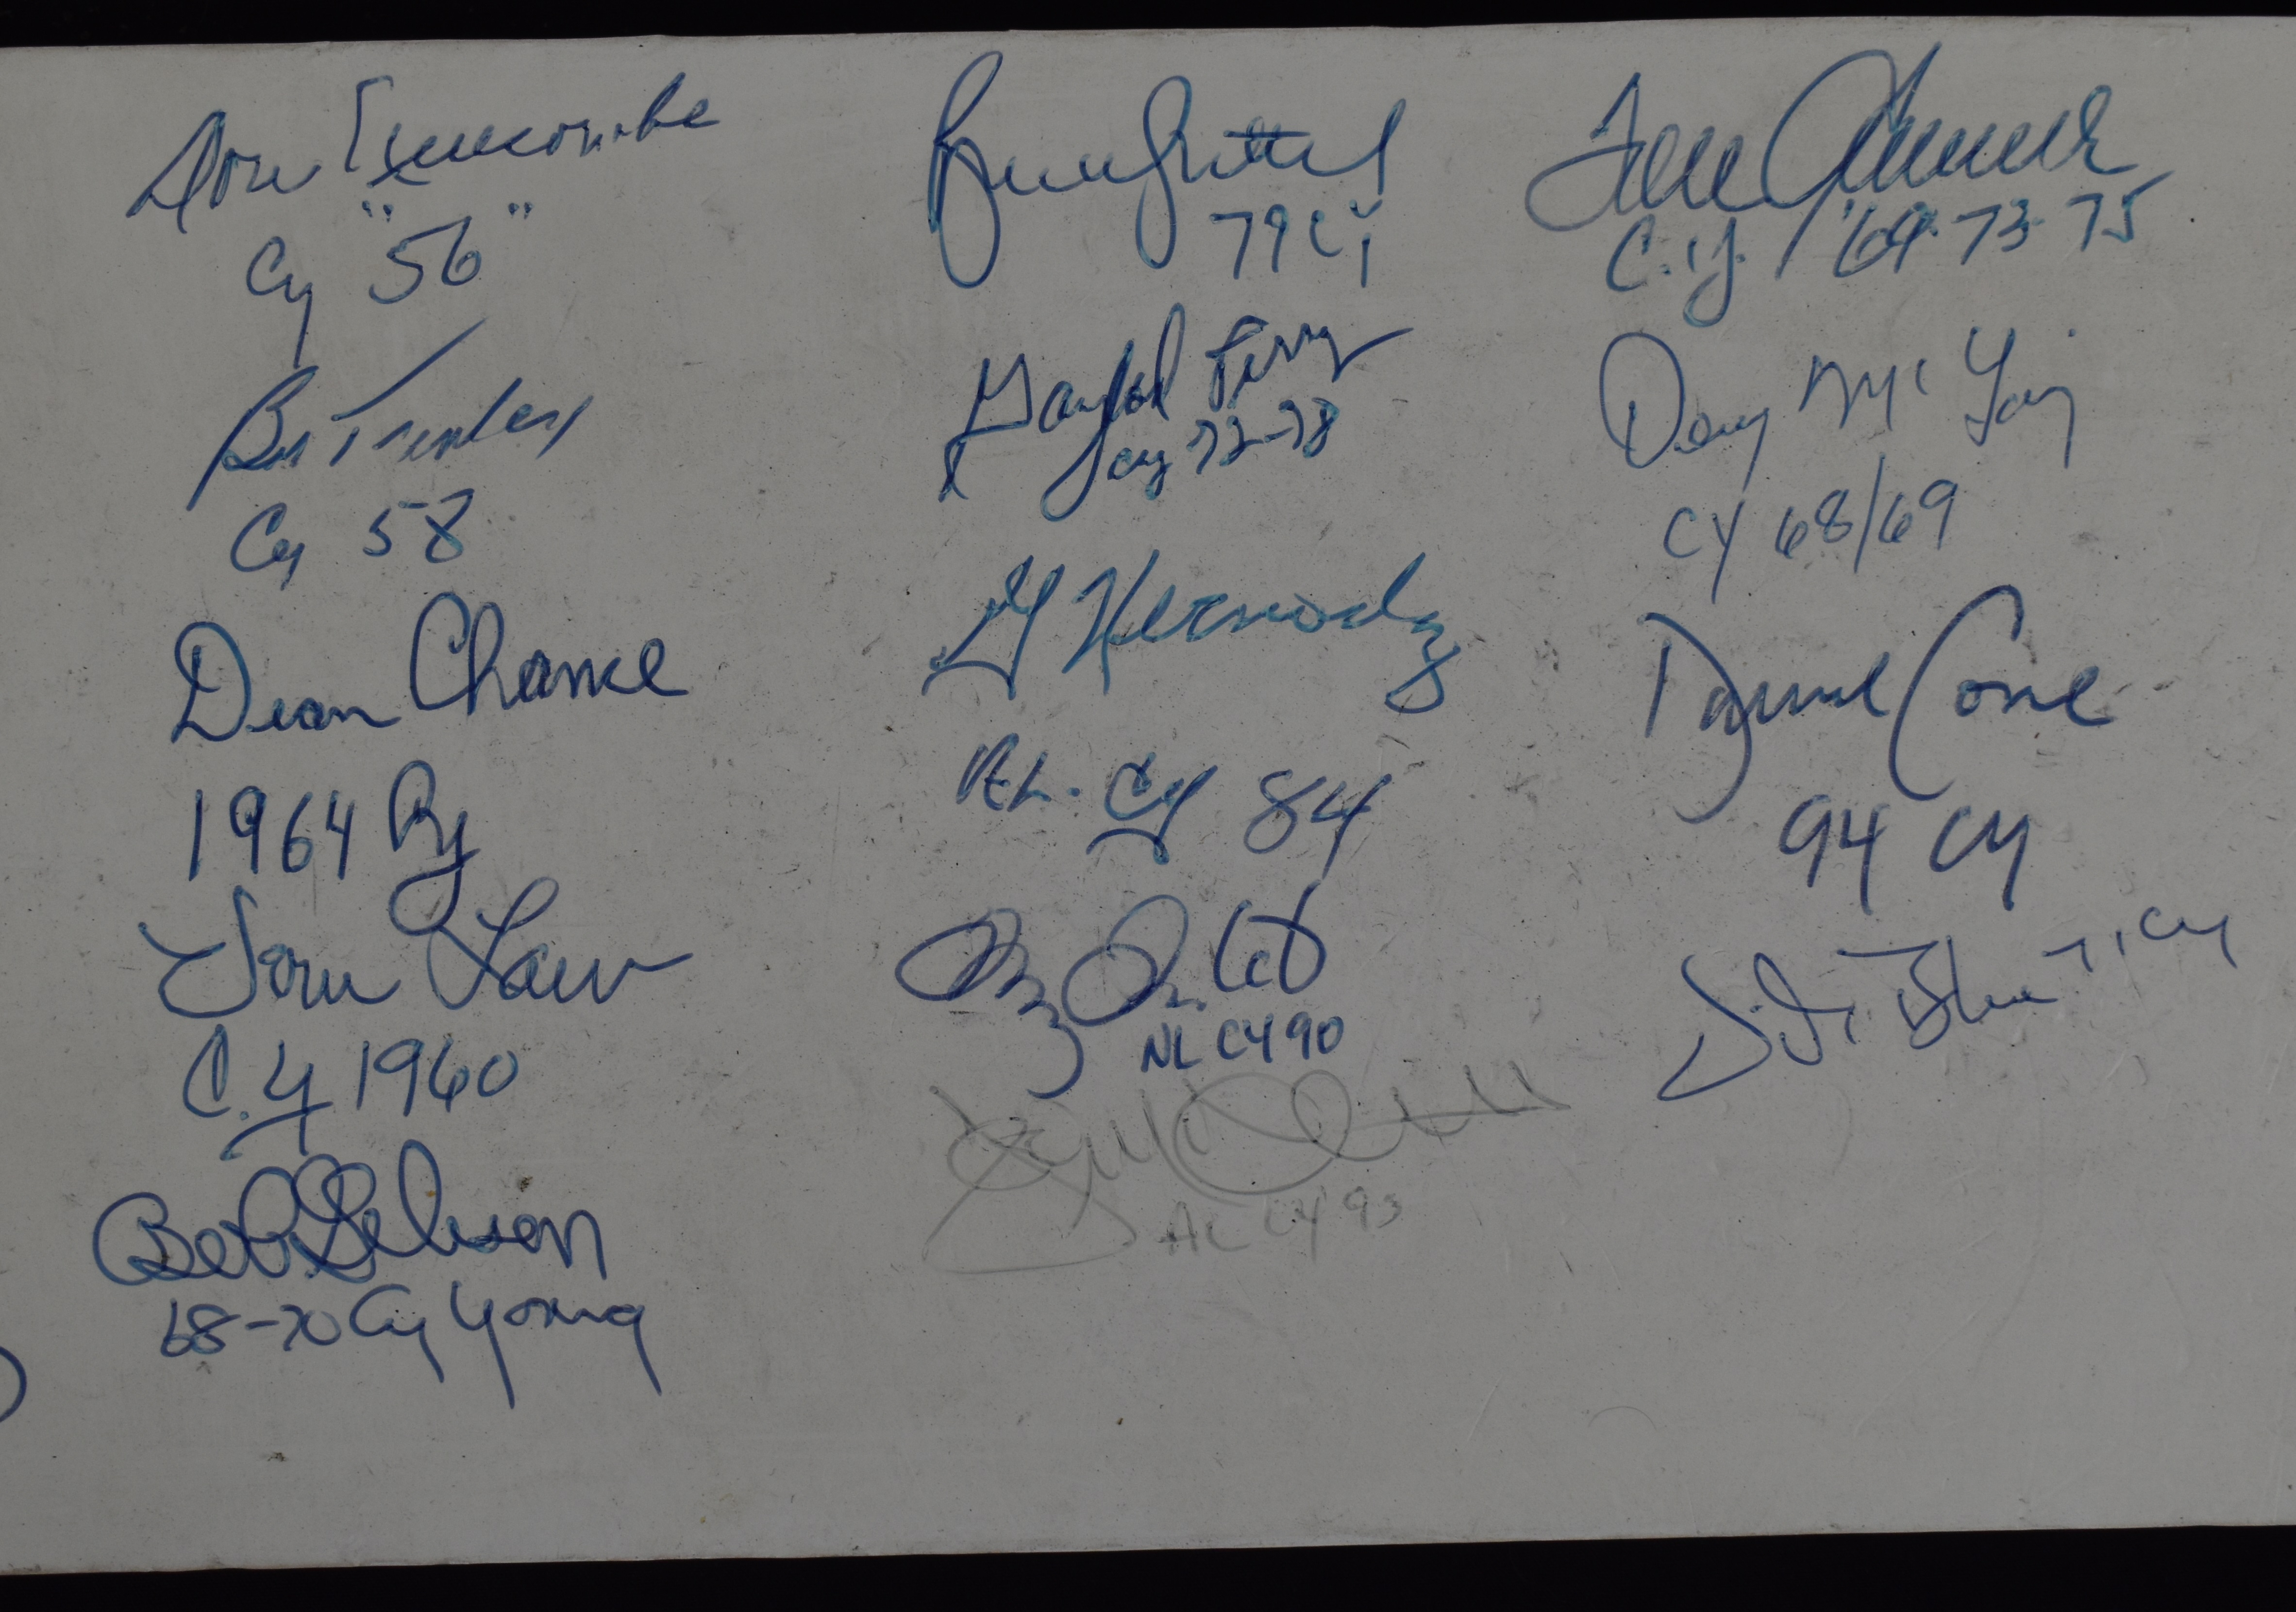 Don Newcombe
Cy "56"
Bob Turley
Cy 58
Dean Chance
1964 Cy
Vern Law
C.Y 1960
Bob Gibson
68-70 Cy Young
Bruce Sutter
79 CY
Gaylord Perry
Cy 72-78
G Hernandez
AL. Cy 84
Doug Drabek
NL CY 90
Jack McDowell
AL CY 93
Tom Seaver
C.Y. '69-73-75
Denny McLain
CY 68/69
David Cone
94 CY
71 Cy